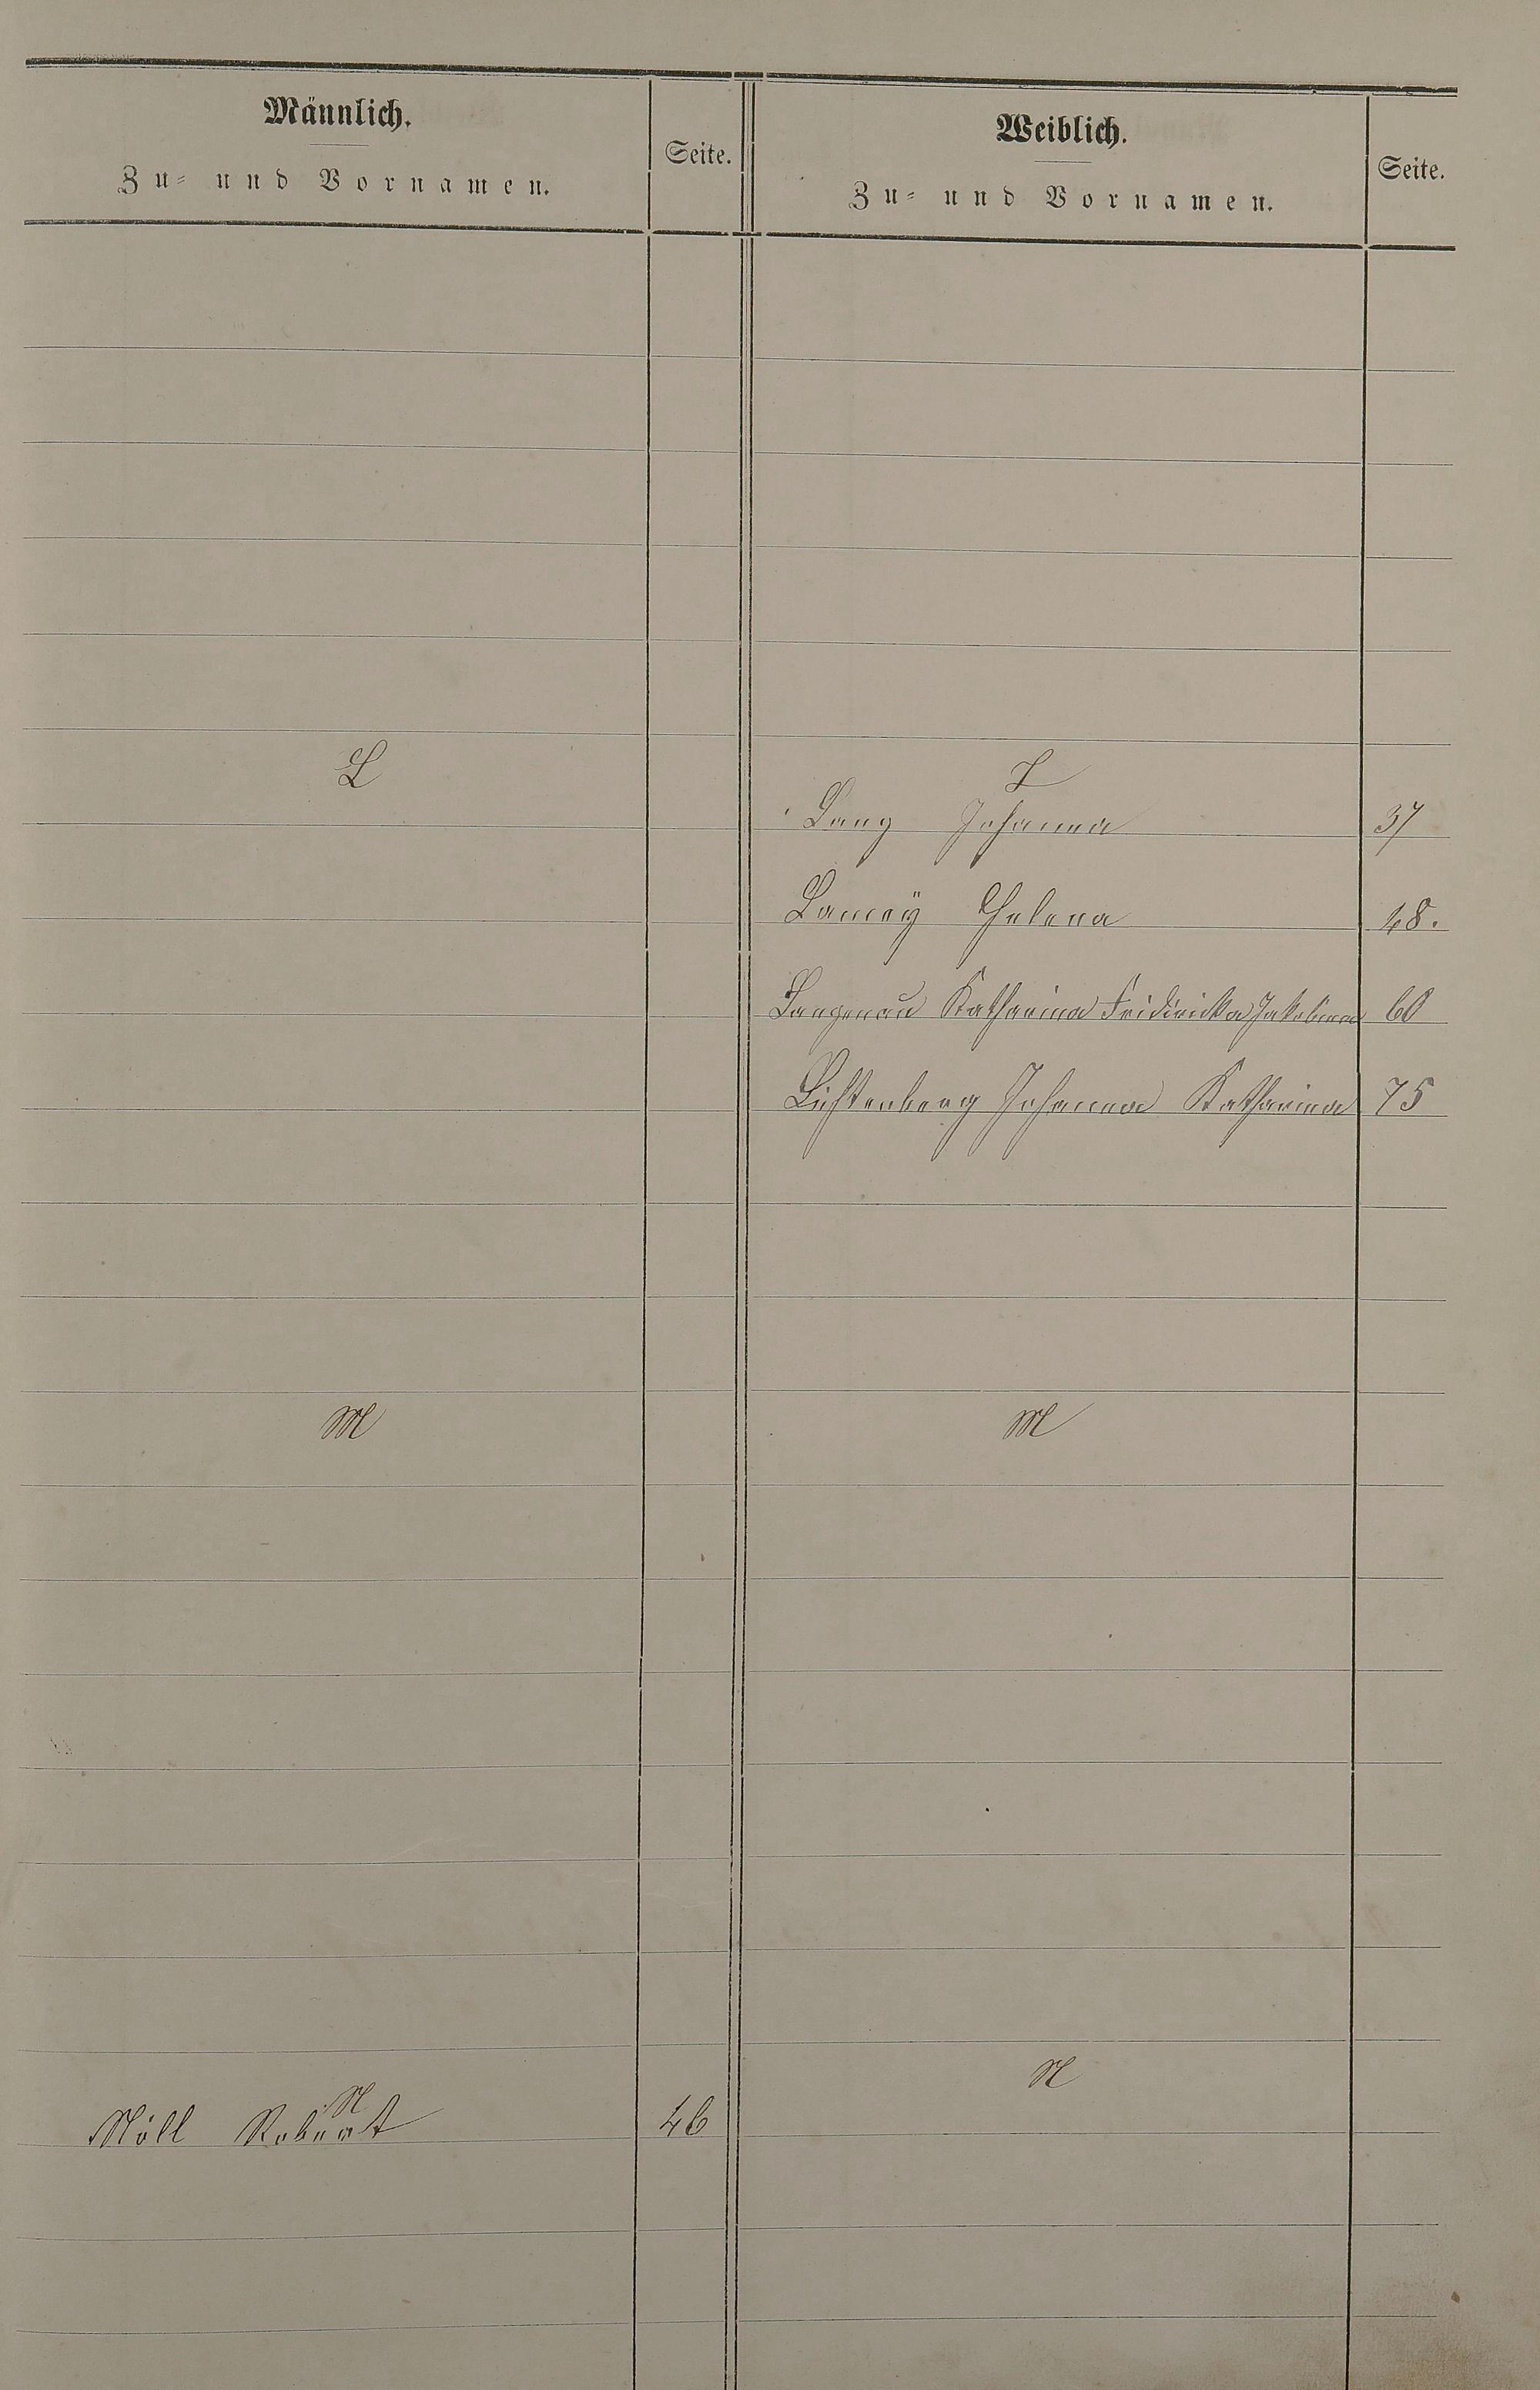 Männlich.
Zu= und Vornamen.
Seite.
Weiblich.
Zu= und Vornamen.
Seite.
L
L
Lang Johanna 37
Lameÿ Helena 48.
Langenau Katharina Friderika Jakobina 60
Lichtenberg Johanna Katharina 75
M
M
N
N
Nöll Robert 46